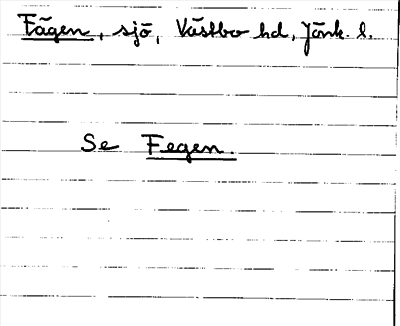 Fägen, sjö, Västbo hd, Jönk. l.
Se Fegen.